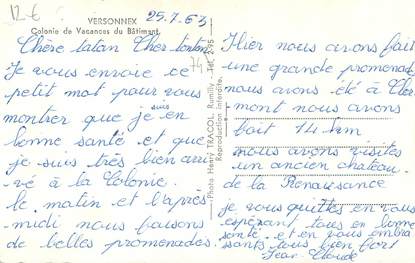 12 €
VERSONNEX
25.7.63
Colonie de Vacances du Bâtiment
74
Chère tatan Cher tonton
Je vous envoie ce
petit mot pour vous
montrer que je suis en
bonne santé et que
je suis très bien arri
vé à la Colonie.
le matin et l'après
midi nous faisons
de belles promenades.
Photo Henri TRACOL, Rumilly - Tél. 2-95
Reproduction interdite.
Hier nous avons fait
une grande promenade
nous avons été à Cler
mont nous avons
fait 14 km
nous avons visités
un ancien château
de la Renaissance
je vous quittes en vous
espérant tous en bonne
santé et en vous embra
sants tous bien fort
Jean Claude